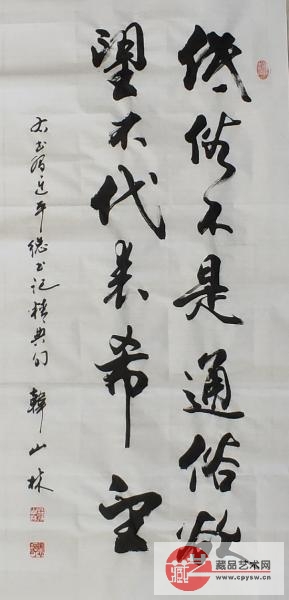 低俗不是通俗欲
望不代表希望
右书习近平总书记精典句 韩山林
藏品艺术网
www.cpysw.cn